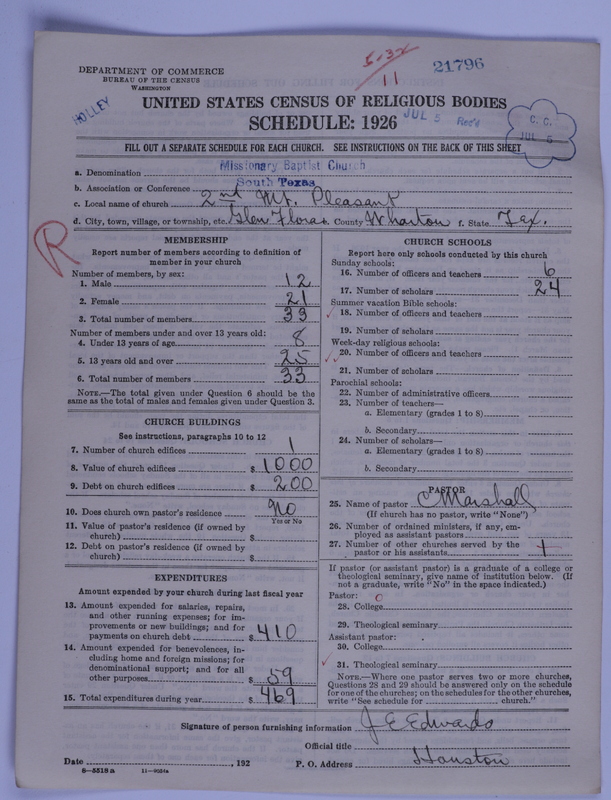 5-32
11
21796
DEPARTMENT OF COMMERCE
BUREAU OF THE CENSUS
WASHINGTON
HOLLEY
UNITED STATES CENSUS OF RELIGIOUS BODIES
JUL 5 Rec'd
C. C.
JUL 5
SCHEDULE: 1926
FILL OUT A SEPARATE SCHEDULE FOR EACH CHURCH. SEE INSTRUCTIONS ON THE BACK OF THIS SHEET
a. Denomination Missionary Baptist Church
b. Association or Conference South Texas
c. Local name of church 2nd Mt. Pleasant
d. City, town, village, or township, etc. Glen Flora e. County Wharton f. State Tex.
R
MEMBERSHIP
Report number of members according to definition of
member in your church
Number of members, by sex:
1. Male 12
2. Female 21
3. Total number of members 33
Number of members under and over 13 years old:
4. Under 13 years of age 8
5. 13 years old and over 25
6. Total number of members 33
NOTE.—The total given under Question 6 should be the
same as the total of males and females given under Question 3.
CHURCH BUILDINGS
See instructions, paragraphs 10 to 12
7. Number of church edifices 1
8. Value of church edifices $ 1000
9. Debt on church edifices $ 200
10. Does church own pastor's residence No
Yes or No
11. Value of pastor's residence (if owned by
church) $
12. Debt on pastor's residence (if owned by
church) $
EXPENDITURES
Amount expended by your church during last fiscal year
13. Amount expended for salaries, repairs,
and other running expenses; for im-
provements or new buildings; and for
payments on church debt $ 410
14. Amount expended for benevolences, in-
cluding home and foreign missions; for
denominational support; and for all
other purposes $ 59
15. Total expenditures during year $ 469
CHURCH SCHOOLS
Report here only schools conducted by this church
Sunday schools:
16. Number of officers and teachers 6
17. Number of scholars 24
Summer vacation Bible schools:
18. Number of officers and teachers
19. Number of scholars
Week-day religious schools:
20. Number of officers and teachers
21. Number of scholars
Parochial schools:
22. Number of administrative officers
23. Number of teachers—
a. Elementary (grades 1 to 8)
b. Secondary
24. Number of scholars—
a. Elementary (grades 1 to 8)
b. Secondary
PASTOR
25. Name of pastor C Marshall
(If church has no pastor, write "None")
26. Number of ordained ministers, if any, em-
ployed as assistant pastors
27. Number of other churches served by the
pastor or his assistants
If pastor (or assistant pastor) is a graduate of a college or
theological seminary, give name of institution below. (If
not a graduate, write "No" in the space indicated.)
Pastor: 0
28. College
29. Theological seminary
Assistant pastor:
30. College
31. Theological seminary
NOTE.—Where one pastor serves two or more churches,
Questions 28 and 29 should be answered only on the schedule
for one of the churches; on the schedules for the other churches,
write "See schedule for church."
Signature of person furnishing information J E Edwards
Official title
Date , 192 P. O. Address Houston
8-5518a 11-9034a